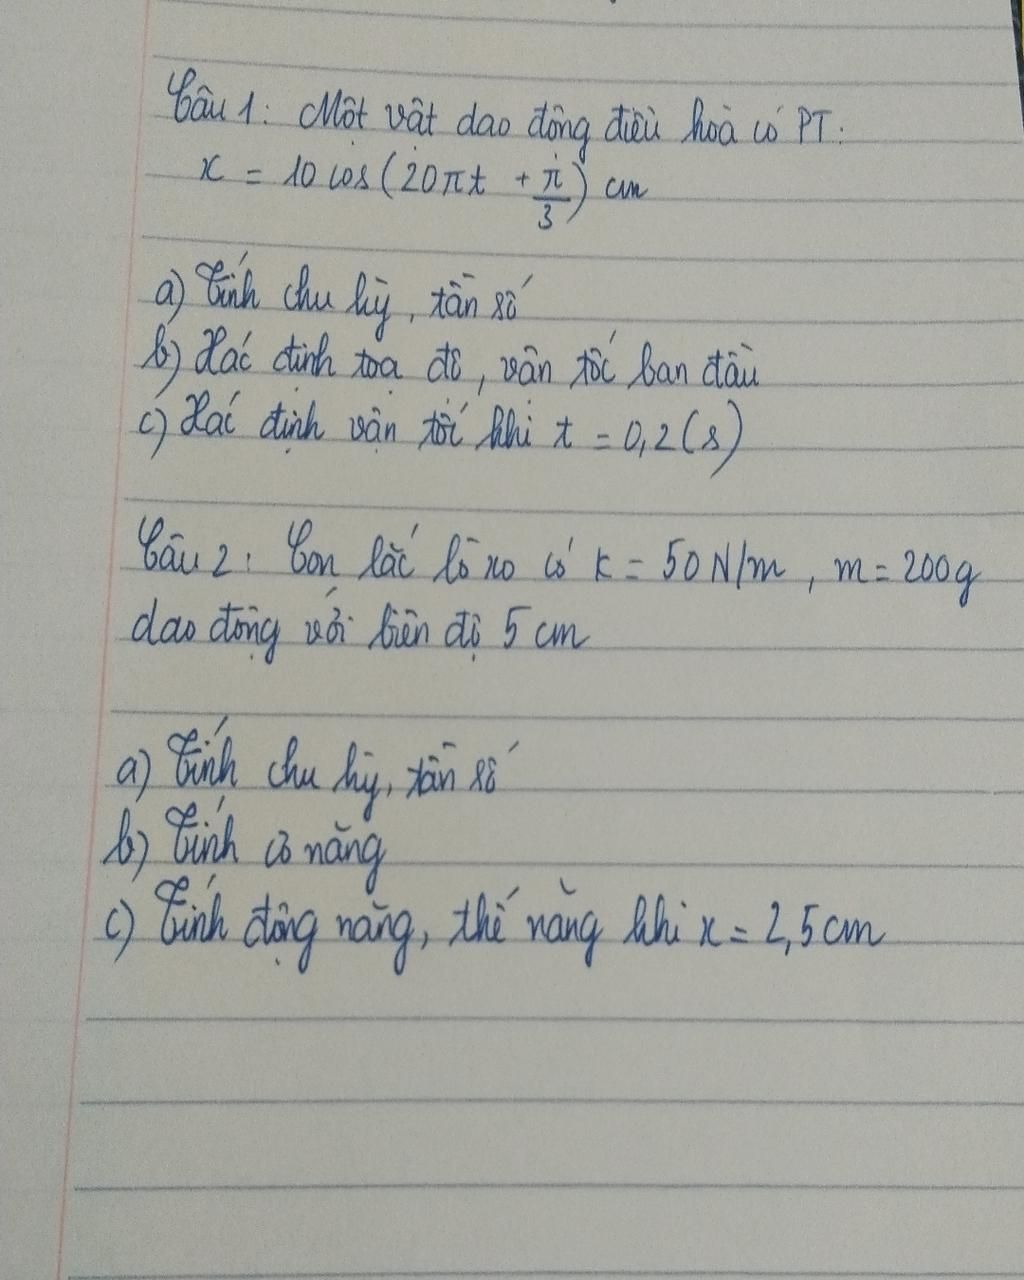 Câu 1: Một vật dao động điều hoà có PT:
x = 10 cos(20πt + π/3) cm
a) Tính chu kỳ, tần số
b) Xác định toạ độ, vận tốc ban đầu
c) Xác định vận tốc khi t = 0,2(s)
Câu 2: Con lắc lò xo có k = 50 N/m, m = 200g
dao động với biên độ 5 cm
a) Tính chu kỳ, tần số
b) Tính cơ năng
c) Tính động năng, thế năng khi x = 2,5cm